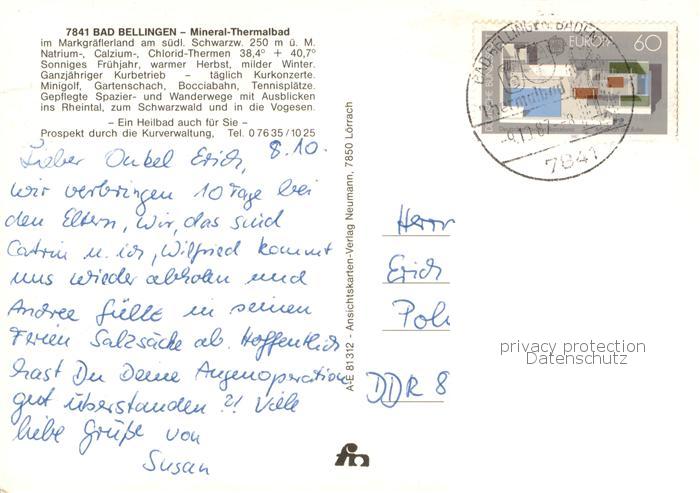 7841 BAD BELLINGEN – Mineral-Thermalbad
im Markgräflerland am südl. Schwarzw. 250 m ü. M.
Natrium-, Calzium-, Chlorid-Thermen 38,4° + 40,7°
Sonniges Frühjahr, warmer Herbst, milder Winter.
Ganzjähriger Kurbetrieb – täglich Kurkonzerte.
Minigolf, Gartenschach, Bocciabahn, Tennisplätze.
Gepflegte Spazier- und Wanderwege mit Ausblicken
ins Rheintal, zum Schwarzwald und in die Vogesen.
– Ein Heilbad auch für Sie –
Prospekt durch die Kurverwaltung, Tel. 0 76 35 / 10 25
8.10.
Lieber Onkel Erich,
wir verbringen 10 Tage bei
den Eltern, wir, das sind
Catrin u. ich, Wilfried kommt
uns wieder abholen und
Andree füllt in seinen
Ferien Salzsäcke ab. Hoffentlich
hast Du Deine Augenoperation
gut überstanden ?! Viele
liebe Grüße von
Susan
A-E 81312 - Ansichtskarten-Verlag Neumann, 7850 Lörrach
EUROPA 60
BAD BELLINGEN, BADEN
-9.10.87-
7841
Herrn
Erich
DDR 8
privacy protection
Datenschutz